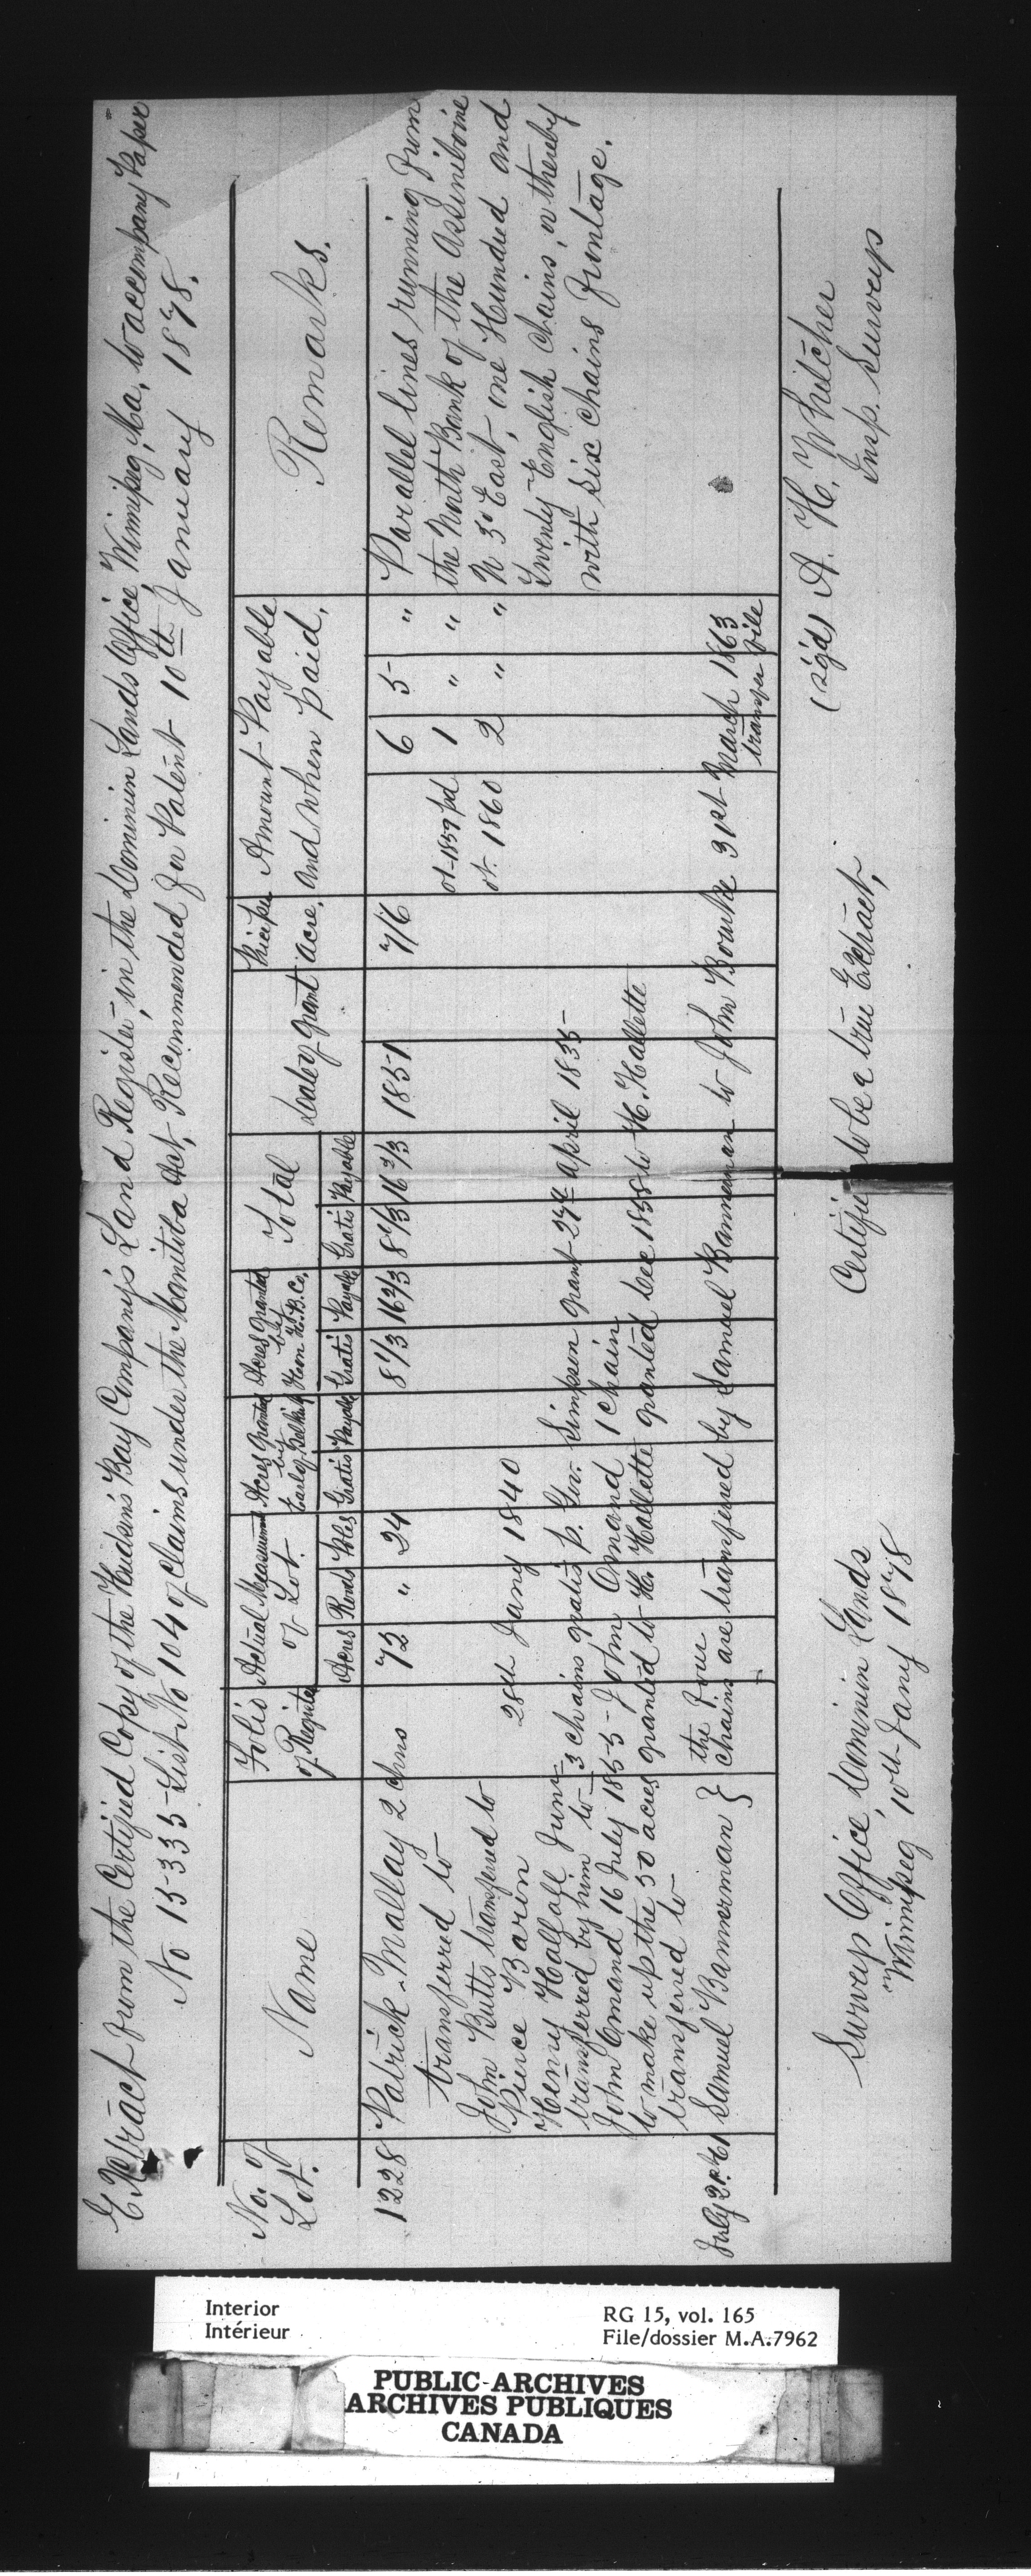 Extract from the Certified Copy of the Hudson's Bay Company's Land Register, in the Dominion Lands Office, Winnipeg, Ma, to accompany Paper
No 15335 List No 104 of Claims under the Manitoba Act, Recommended for Patent 10th January 1878.
No. of Lot.
Name
Folio of Register
Actual Measurement of Lot.
Acres Roods Poles
Acres Granted by Earl of Selkirk
Gratis Payable
Acres Granted by Hon H.B.Co.
Gratis Payable
Total
Gratis Payable
Date of Grant
Price per Acre,
Amount Payable and when paid,
Remarks.
1228 Patrick Mallay 2 chns 72 " 24 8 1/3 16 2/3 8 1/3 16 2/3 1851 7/6 6 5 "
transferred to ot 1859 pd 1 " "
John Butts transferred to ot 1860 2 " "
Pierce Barin 28th Jany 1840
Henry Hallett Junr 3 chains gratis p. Gov. Simpson grant 27th April 1835
transferred by him to
John Omand 16 July 1855 - John Omand 1 chain
to make up the 50 acres granted to H. Hallette granted Dec 1858 to H. Hallette
transferred to
July 2nd 61 Samuel Bannerman } the four chains are transferred by Samuel Bannerman to John Bourke 31st March 1863
transfer file
Parallel lines running from
the North Bank of the Assiniboine
N 3° East, one Hundred and
Twenty English Chains, on thereby
with six chains frontage.
Certified to be a true Extract,
(sg'd) A. H. Whitcher
Insp. Surveys
Survey Office, Dominion Lands
Winnipeg, 10th Jany 1878
Interior
Intérieur
RG 15, vol. 165
File/dossier M.A.7962
PUBLIC ARCHIVES
ARCHIVES PUBLIQUES
CANADA